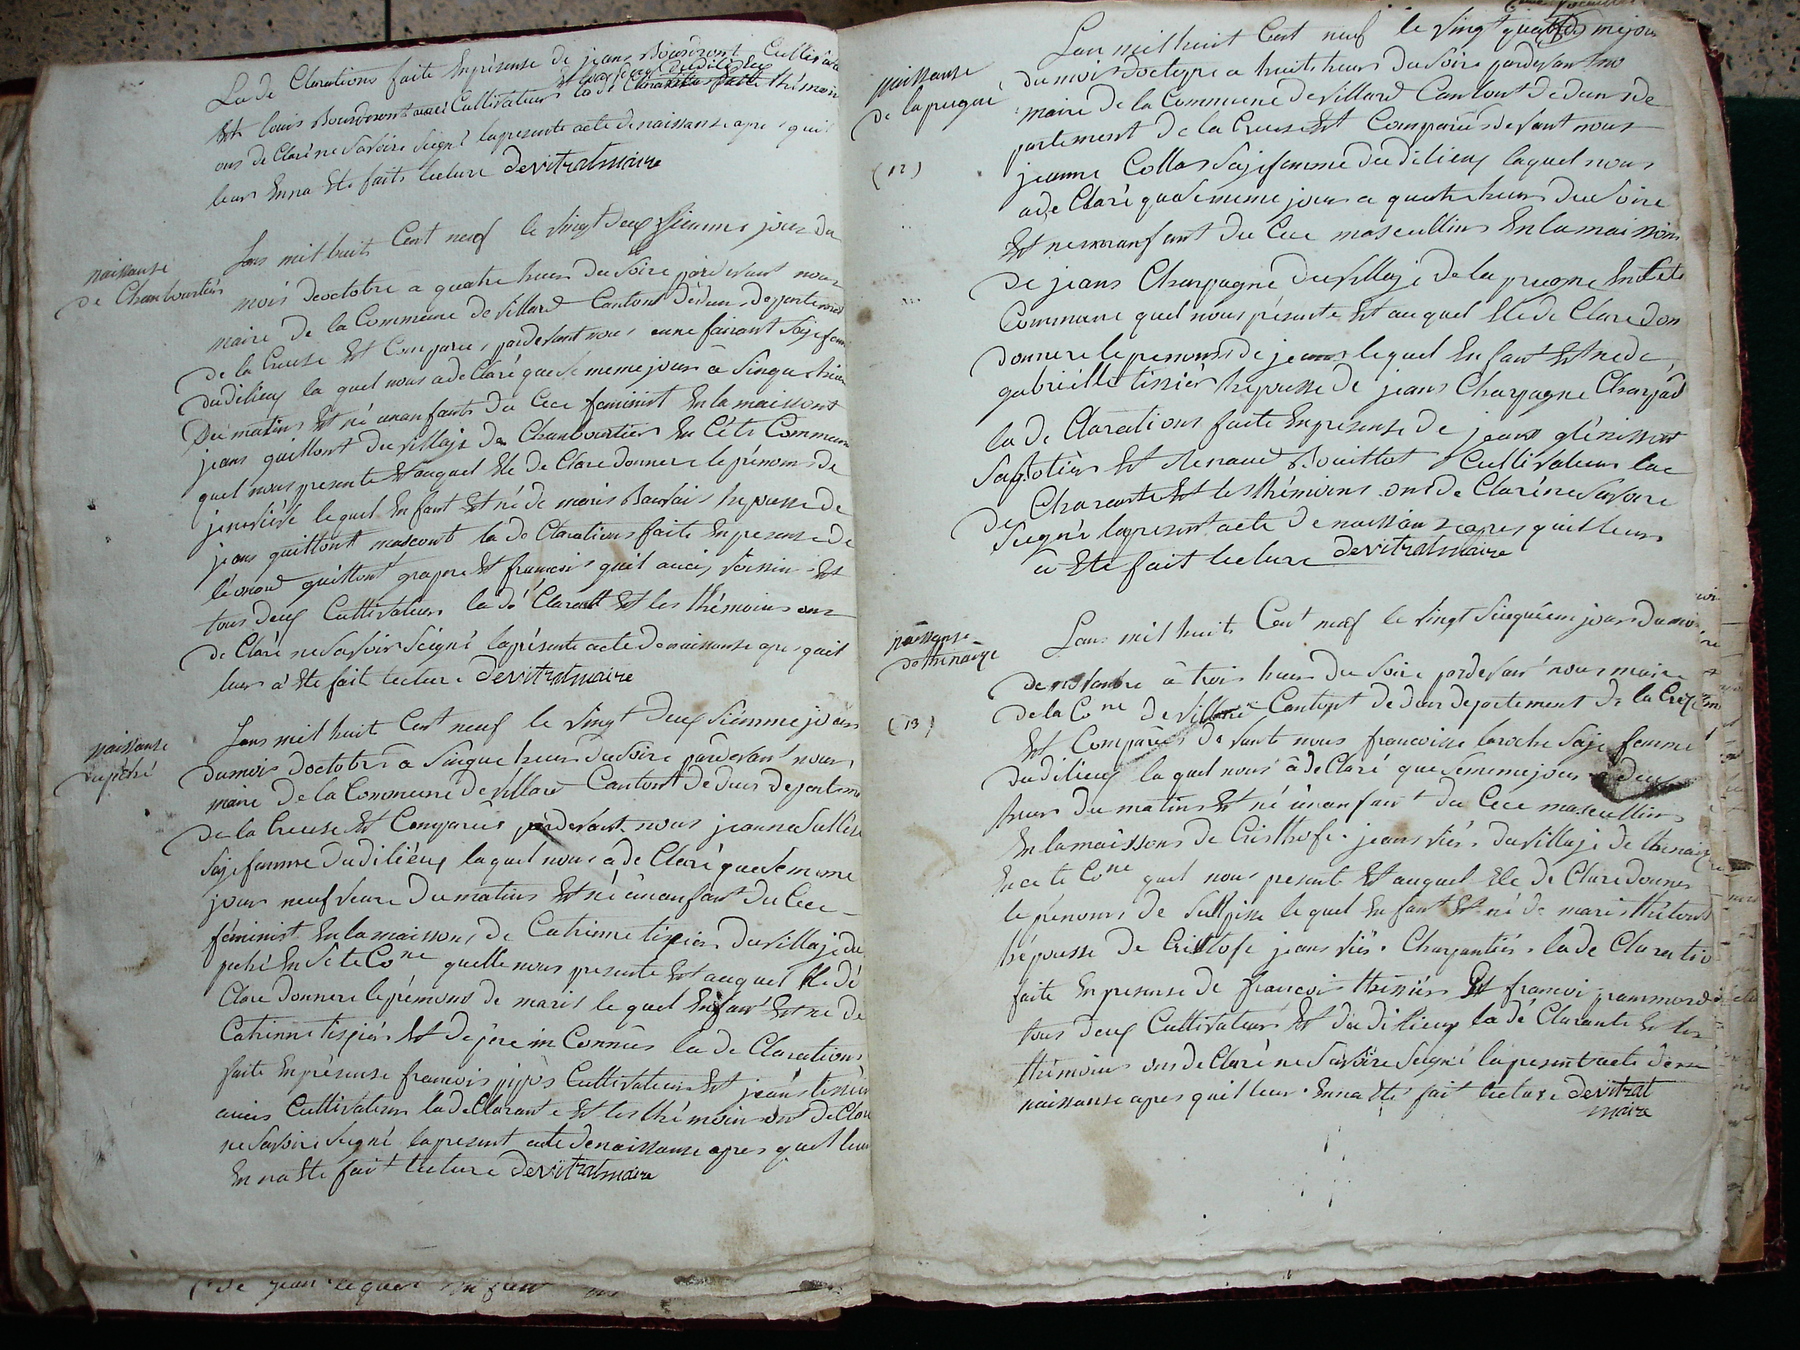 La de Clarations faite En présense de jeans Bourdront Cultivate
Et louis Bourdront Cultivateur la de Clarante thémoin
ons de Claré ne Savoire Seigné la présente acte denaissanse apre quil
leur En na Ete faite lecture devitrat maire
naissanse
de Chanboartier
Lans mil huit Cent neuf le vingt deuxsiemme jour du
mois deoctobre a quatre heur du Soire pardevant nous
maire de la Commeune devillard Cantont dedun departemen
de la Creuse Et Comparue pardevant nous faivant Sajefem
dudilieux la quel nous adeClaré que Se meme jours à Sinque heur
Du matins Et né unanfants du Cece feminist En la maissont
jeans guillont du villaje de Chanboartier En Céte Commeun
quel nous presente Et auquel Ele de Clare donnere le prénoms de
jeneviéve le quel En fant Et né de marie Bauvais hepousse de
jeans guillont massont la de Clarations faite En presense de
léonard guillont grapere Et francois voissin Et
tous deux Cultivateur la dé Clarantt Et les thémoins ons
de Claré ne Savoir Seigné la présente acte denaissanse apre quil
leur a Ete fait lecture devitrat maire
naissanse
du piché
Lans mil huit Cent neuf le vingt deux Siémme jours
dumois doctobre a Sinque heur du Soire pardevant nous
maire de la Commeune devillard Cantont de dun departeme
de la Creuse Et Comparüe pardevant nous jeanne
Saje femme dudiliéux la quel nous a de Claré que Se meme
jours neuf heure Du matins Et né ünanfant du Cece
féminist En la maissons de Catrinne tixier du villaje du
piché En Se te Cone quelle nous presente Et auquel Ele dé
Clare donnere le prénoms de marie le quel Enfant Et né de
Catrinne tixier Et de père in Connus la de Clarations
faite En présense francois Cultivateur Et jeans tixier
aucis Cultivateur la de Clarante Et les thémoin ont de Clare
ne Savoire Seigné la presant acte denaissanse apre quil leur
En na Ete fait lecture devitrat maire
de jean le quel En fant
naissanse
de la preugne
(12)
Lan mil huit Cent neuf le vingt quatrie me jour
du mois doctopre a huit heur du Soire pardevant nou
maire de la Commeune devillard Cantont de dun de
partement de la Creuse Et Comparüe devant nous
jeanne Collas Sajefemme du dilieux la quel nous
a de Claré qua Se meme jour a quatre heur du Soire
Et né unanfant du Cece mascullin En la maisson
de jeans Charpagne du villaje de la preugne En Cete
Commune quel nous présente Et au quel Ele de Clare don
donnere le prenoms de jeans le quel En fant Et né de
gabrielle tixier hepousse de jeans Charpagne Charpan
la de Clarations faite En presense de jeans glénissont
Sabotier Et Renaud Bouillot Cultivateur la
de Charante Et les thémoins ons de Claré ne Savoire
Seigné la present acte de naissan se apres quil leur
a Ete fait lecture devitrat maire
naissanse
de thenaize
(13)
Lans mil huit Cent neuf le vingt Sinquiem jours du moi
de novanbre à trois heur du Soire pardevant nous maire
de la Cone de villard Cantont de dun departement de la Creuse
Et Comparüe devant nous francoisse laroche Saje femme
du dilieux la quel nous à de Claré que Se meme jour a deux
heur du matins Et né ünanfant du Cece mascullin
En la maissons de Cristhofe jeans du villaje de thenaize
En ce te Cone quel nous present Et auquel Ele de Clare donner
le prénoms de Sulpisse le quel En fant Et né de marie
hépousse de Cristhofe jeans Charpantier la de Claratio
faite En presense de francois thixsier Et francoi
tous deux Cultivateur Et du dilieux la dé Clarante Et les
thémoins ons de Claré ne Savoire Seigné la presant acte de
naissanse apres quil leur En na Eté fait lecture devitrat
maire